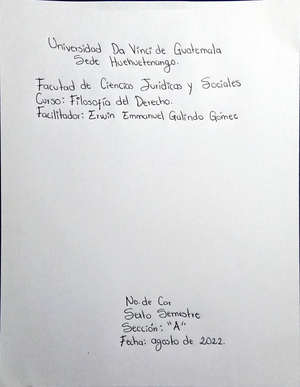 Universidad Da Vinci de Guatemala
Sede Huehuetenango.
Facultad de Ciencias Jurídicas y Sociales
Curso: Filosofía del Derecho.
Facilitador: Erwin Emmanuel Galindo Gómez
No. de Cor
Sexto Semestre
Sección: "A"
Fecha: agosto de 2022.